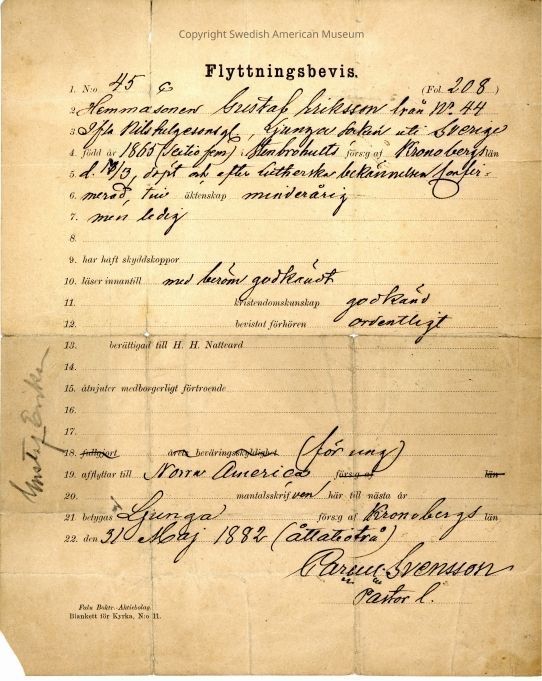 Copyright Swedish American Museum
Flyttningsbevis.
1. N:o 45 (Fol. 208)
2 Hemmasonen Gustaf Eriksson från No 44
3 Ljunga Socken uti Sverige
4. född år 1865 Stenbrohults förs:g af Kronobergs län
5 d. /3, döpt och efter Lutherska bekännelsen Confir-
6. merad, äktenskap minderårig
7. men ledig
8.
9. har haft skyddskoppor
10. läser innantill med beröm godkändt
11. kristendomskunskap godkänd
12. bevistat förhören ordentligt
13. berättigad till H. H. Nattvard
14.
15. åtnjuter medborgerligt förtroende
16.
17.
18. fullgjort årets beväringsskyldighet (för ung)
19. afflyttar till Norra America, förs:g af län
20. mantalsskrifven här till nästa år
21 betygas af Ljunga förs:g af Kronobergs län
22. den 31 Maj 1882 (åttatiotvå)
Svensson
Pastor l.
Falu Boktr.-Aktiebolag.
Blankett för Kyrka, N:o 11.